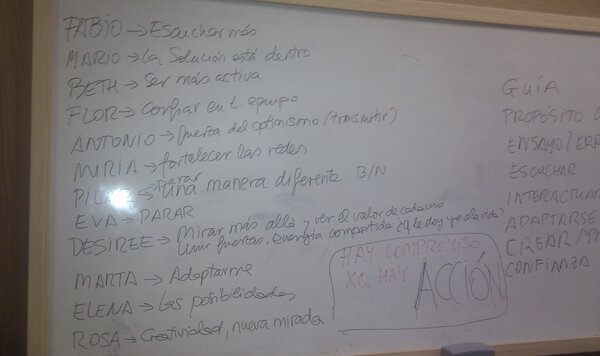 FABIO → Escuchar más
MARIO → La Solución está dentro
BETH → Ser más activa
FLOR → Confiar en l. equipo
ANTONIO → fuerza del optimismo (transmitir)
NURIA → fortalecer las redes
parar
PILAR → una manera diferente B/N
EVA → PARAR
DESIREE → Mirar más allá y ver el valor de cada uno
Unir fuerzas, energía compartida ¿qle doy yo a la vida?
MARTA → Adaptarme
ELENA → las posibilidades
ROSA → Creatividad, nueva mirada
HAY COMPROMISO
XQ HAY
ACCIÓN
GUÍA
PROPÓSITO
ENSAYO/ERR
ESCUCHAR
INTERACTUAR
ADAPTARSE
CREAR/
CONFIANZA